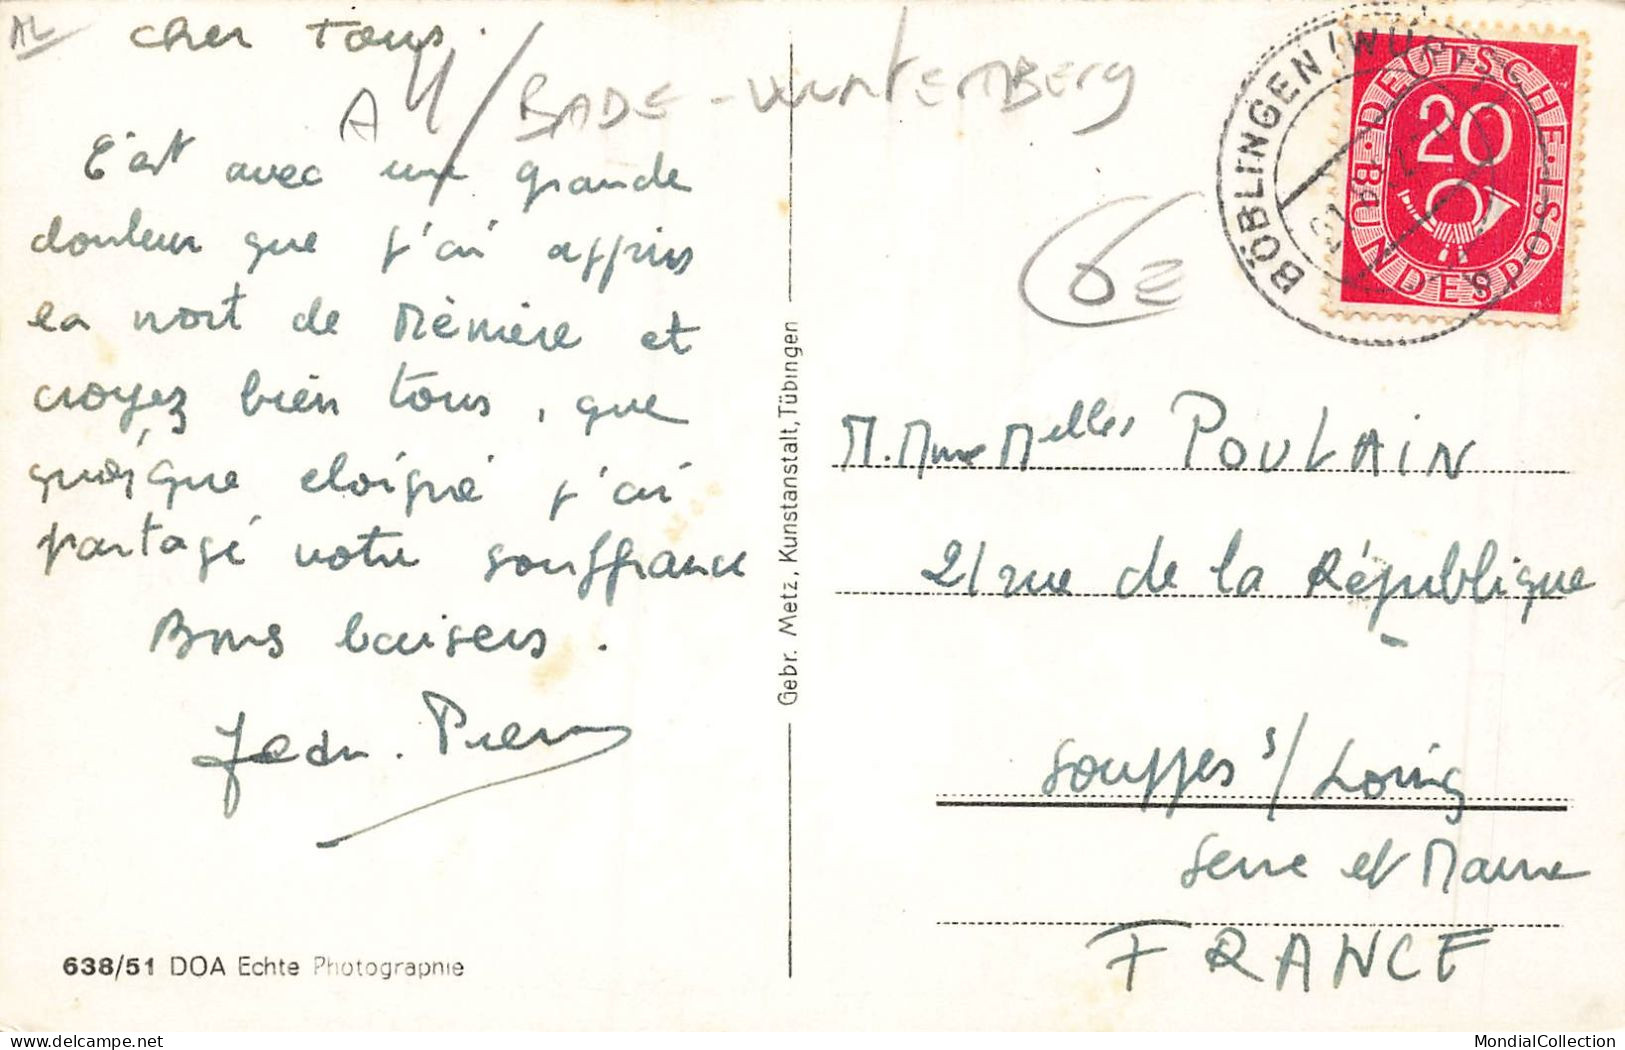 AL
cher Tous.
A4/BADE-WURTEMBERG
C'est avec une grande
douleur que j'ai appris
la mort de Mémère et
croyez bien tous, que
quoique eloigné j'ai
partagé votre souffrance
Bons baisers.
Jean. Pierre
638/51 DOA Echte Photographie
Gebr. Metz, Kunstanstalt, Tübingen
6E
BÖBLINGEN (WÜRTT
DEUTSCHE BUNDESPOST
20
M. Mme Melles POULAIN
21 rue de la République
Souppes s/ Loing
Seine et Marne
FRANCE
MondialCollection